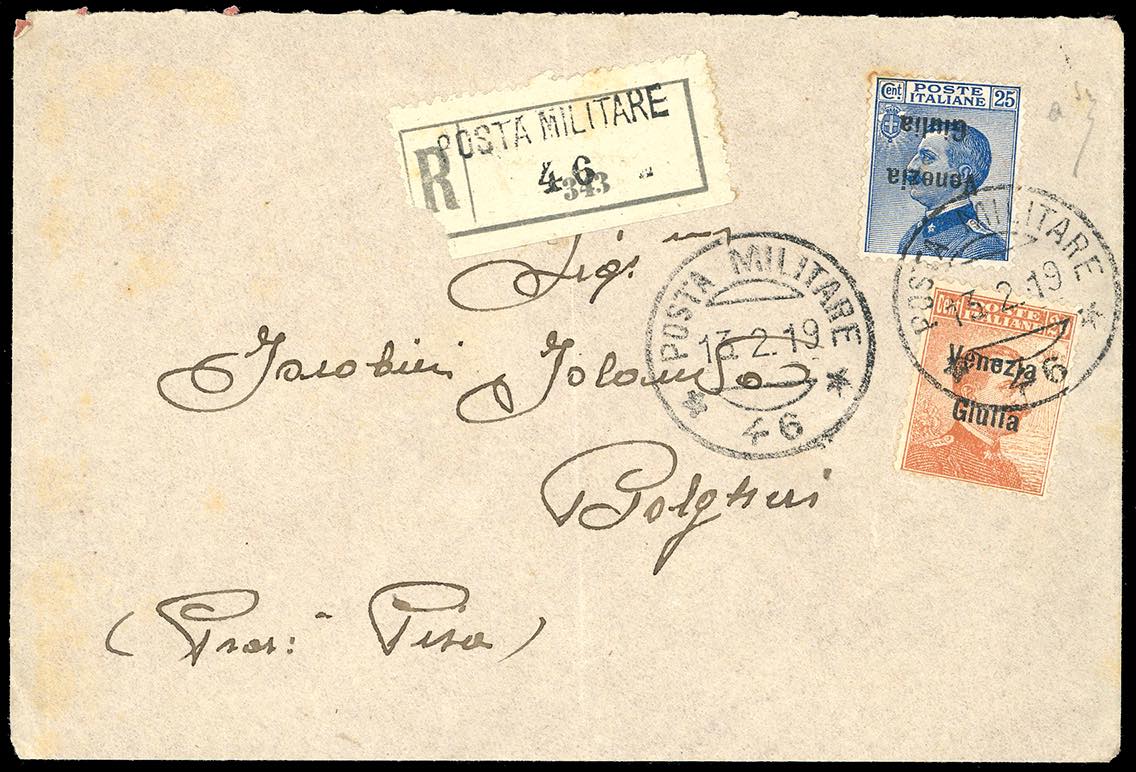 POSTA MILITARE
R 46
343
Cent POSTE ITALIANE 25
Giulia
Venezia
POSTA MILITARE
13.2.19
46
POSTA MILITARE
13.2.19
46
Cent POSTE ITALIANE 20
Venezia
Giulia
Sig.na
Jacobini Jolanda
Bolgheri
(Prov: Pisa)